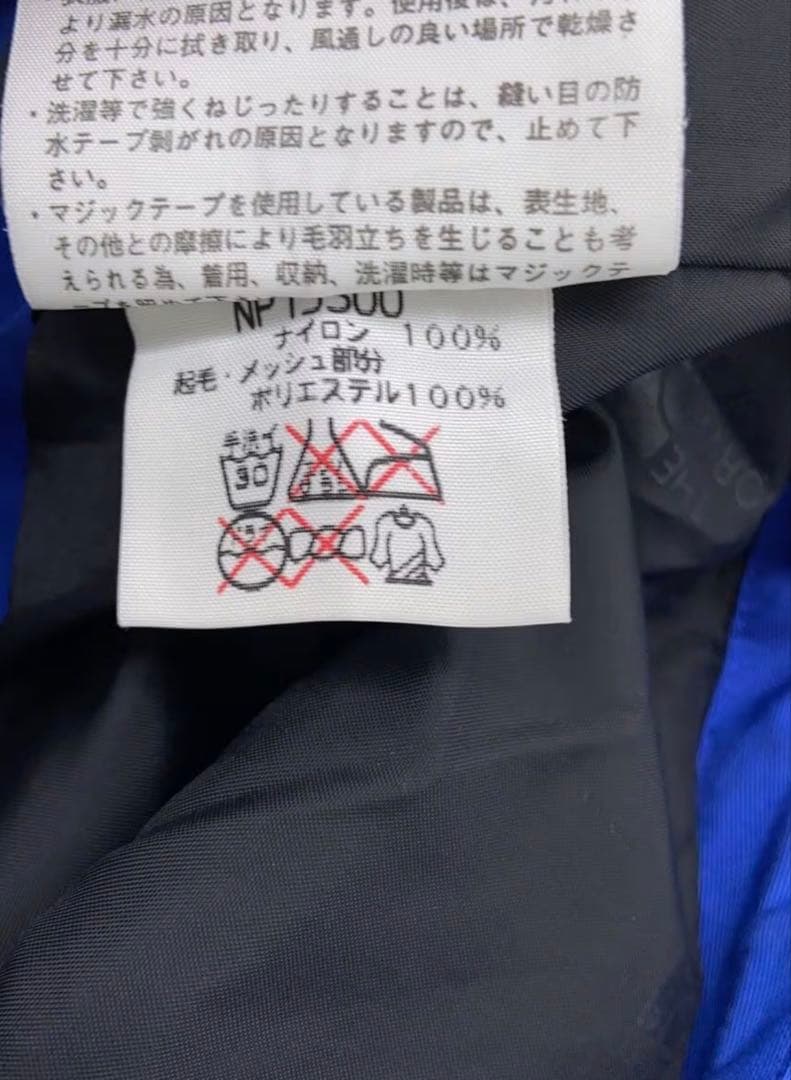 より漏水の原因となります。使用後は、
分を十分に拭き取り、風通しの良い場所で乾燥さ
せて下さい。
・洗濯等で強くねじったりすることは、縫い目の防
水テープ剝がれの原因となりますので、止めて下
さい。
・マジックテープを使用している製品は、表生地、
その他との摩擦により毛羽立ちを生じることも考
えられる為、着用、収納、洗濯時等はマジックテ
ナイロン 100%
起毛・メッシュ部分
ポリエステル100%
手洗イ
30